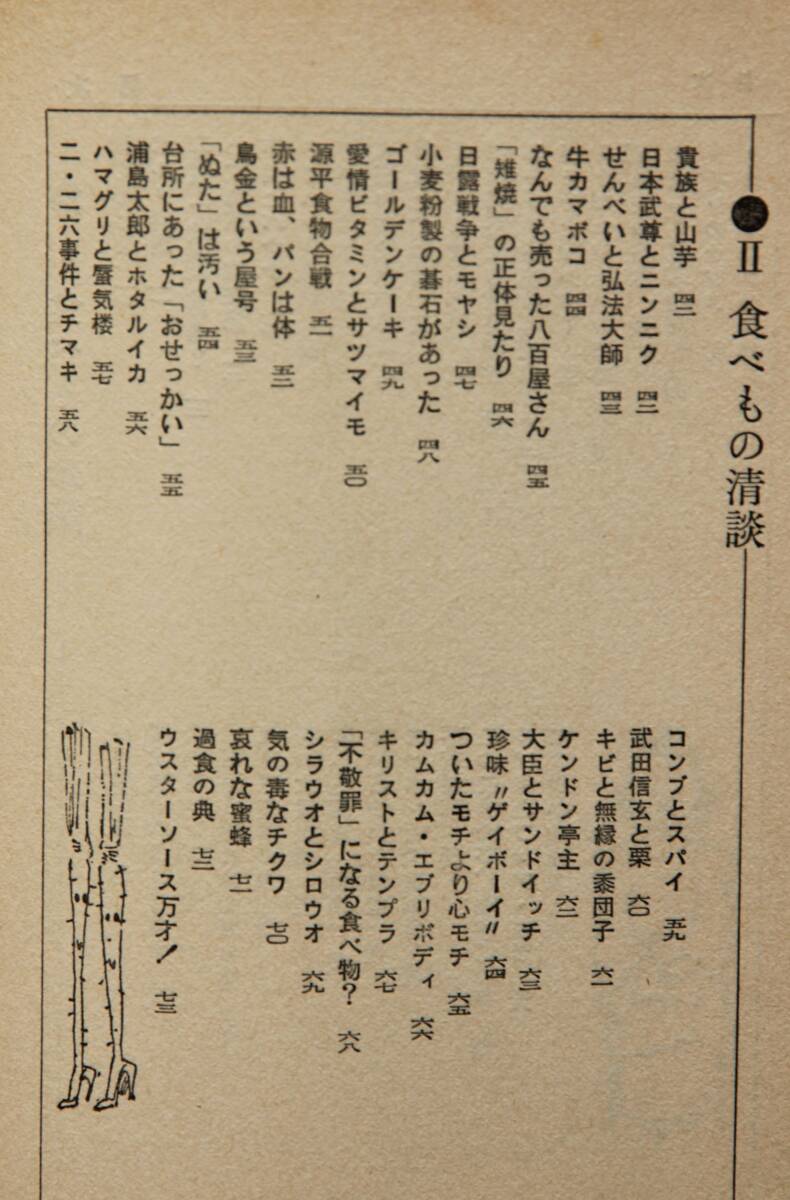 II 食べもの清談
貴族と山芋 四二
日本武尊とニンニク 四二
せんべいと弘法大師 四三
牛カマボコ 四四
なんでも売った八百屋さん 四五
「雉焼」の正体見たり 四六
日露戦争とモヤシ 四七
小麦粉製の碁石があった 四八
ゴールデンケーキ 四九
愛情ビタミンとサツマイモ 五〇
源平食物合戦 五一
赤は血、パンは体 五二
鳥金という屋号 五三
「ぬた」は汚い 五四
台所にあった「おせっかい」 五五
浦島太郎とホタルイカ 五六
ハマグリと蜃気楼 五七
二・二六事件とチマキ 五八
コンブとスパイ 五九
武田信玄と栗 六〇
キビと無縁の黍団子 六一
ケンドン亭主 六二
大臣とサンドイッチ 六三
珍味〝ゲイボーイ〟 六四
ついたモチより心モチ 六五
カムカム・エブリボディ 六六
キリストとテンプラ 六七
「不敬罪」になる食べ物? 六八
シラウオとシロウオ 六九
気の毒なチクワ 七〇
哀れな蜜蜂 七一
過食の典 七二
ウスターソース万才! 七三